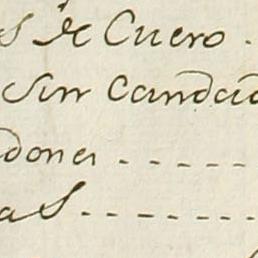 s de Cuero .
Sin Candad
dones . - - - - -
as - - - - - - -